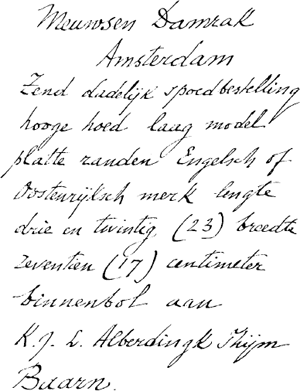 Meuwsen Damrak
Amsterdam
Zend dadelijk spoedbestelling
hooge hoed laag model
platte randen Engelsch of
Oostenrijksch merk lengte
drie en twintig (23) breedte
zeventien (17) centimeter
binnenbol aan
K. J. L. Alberdingk Thijm
Baarn.